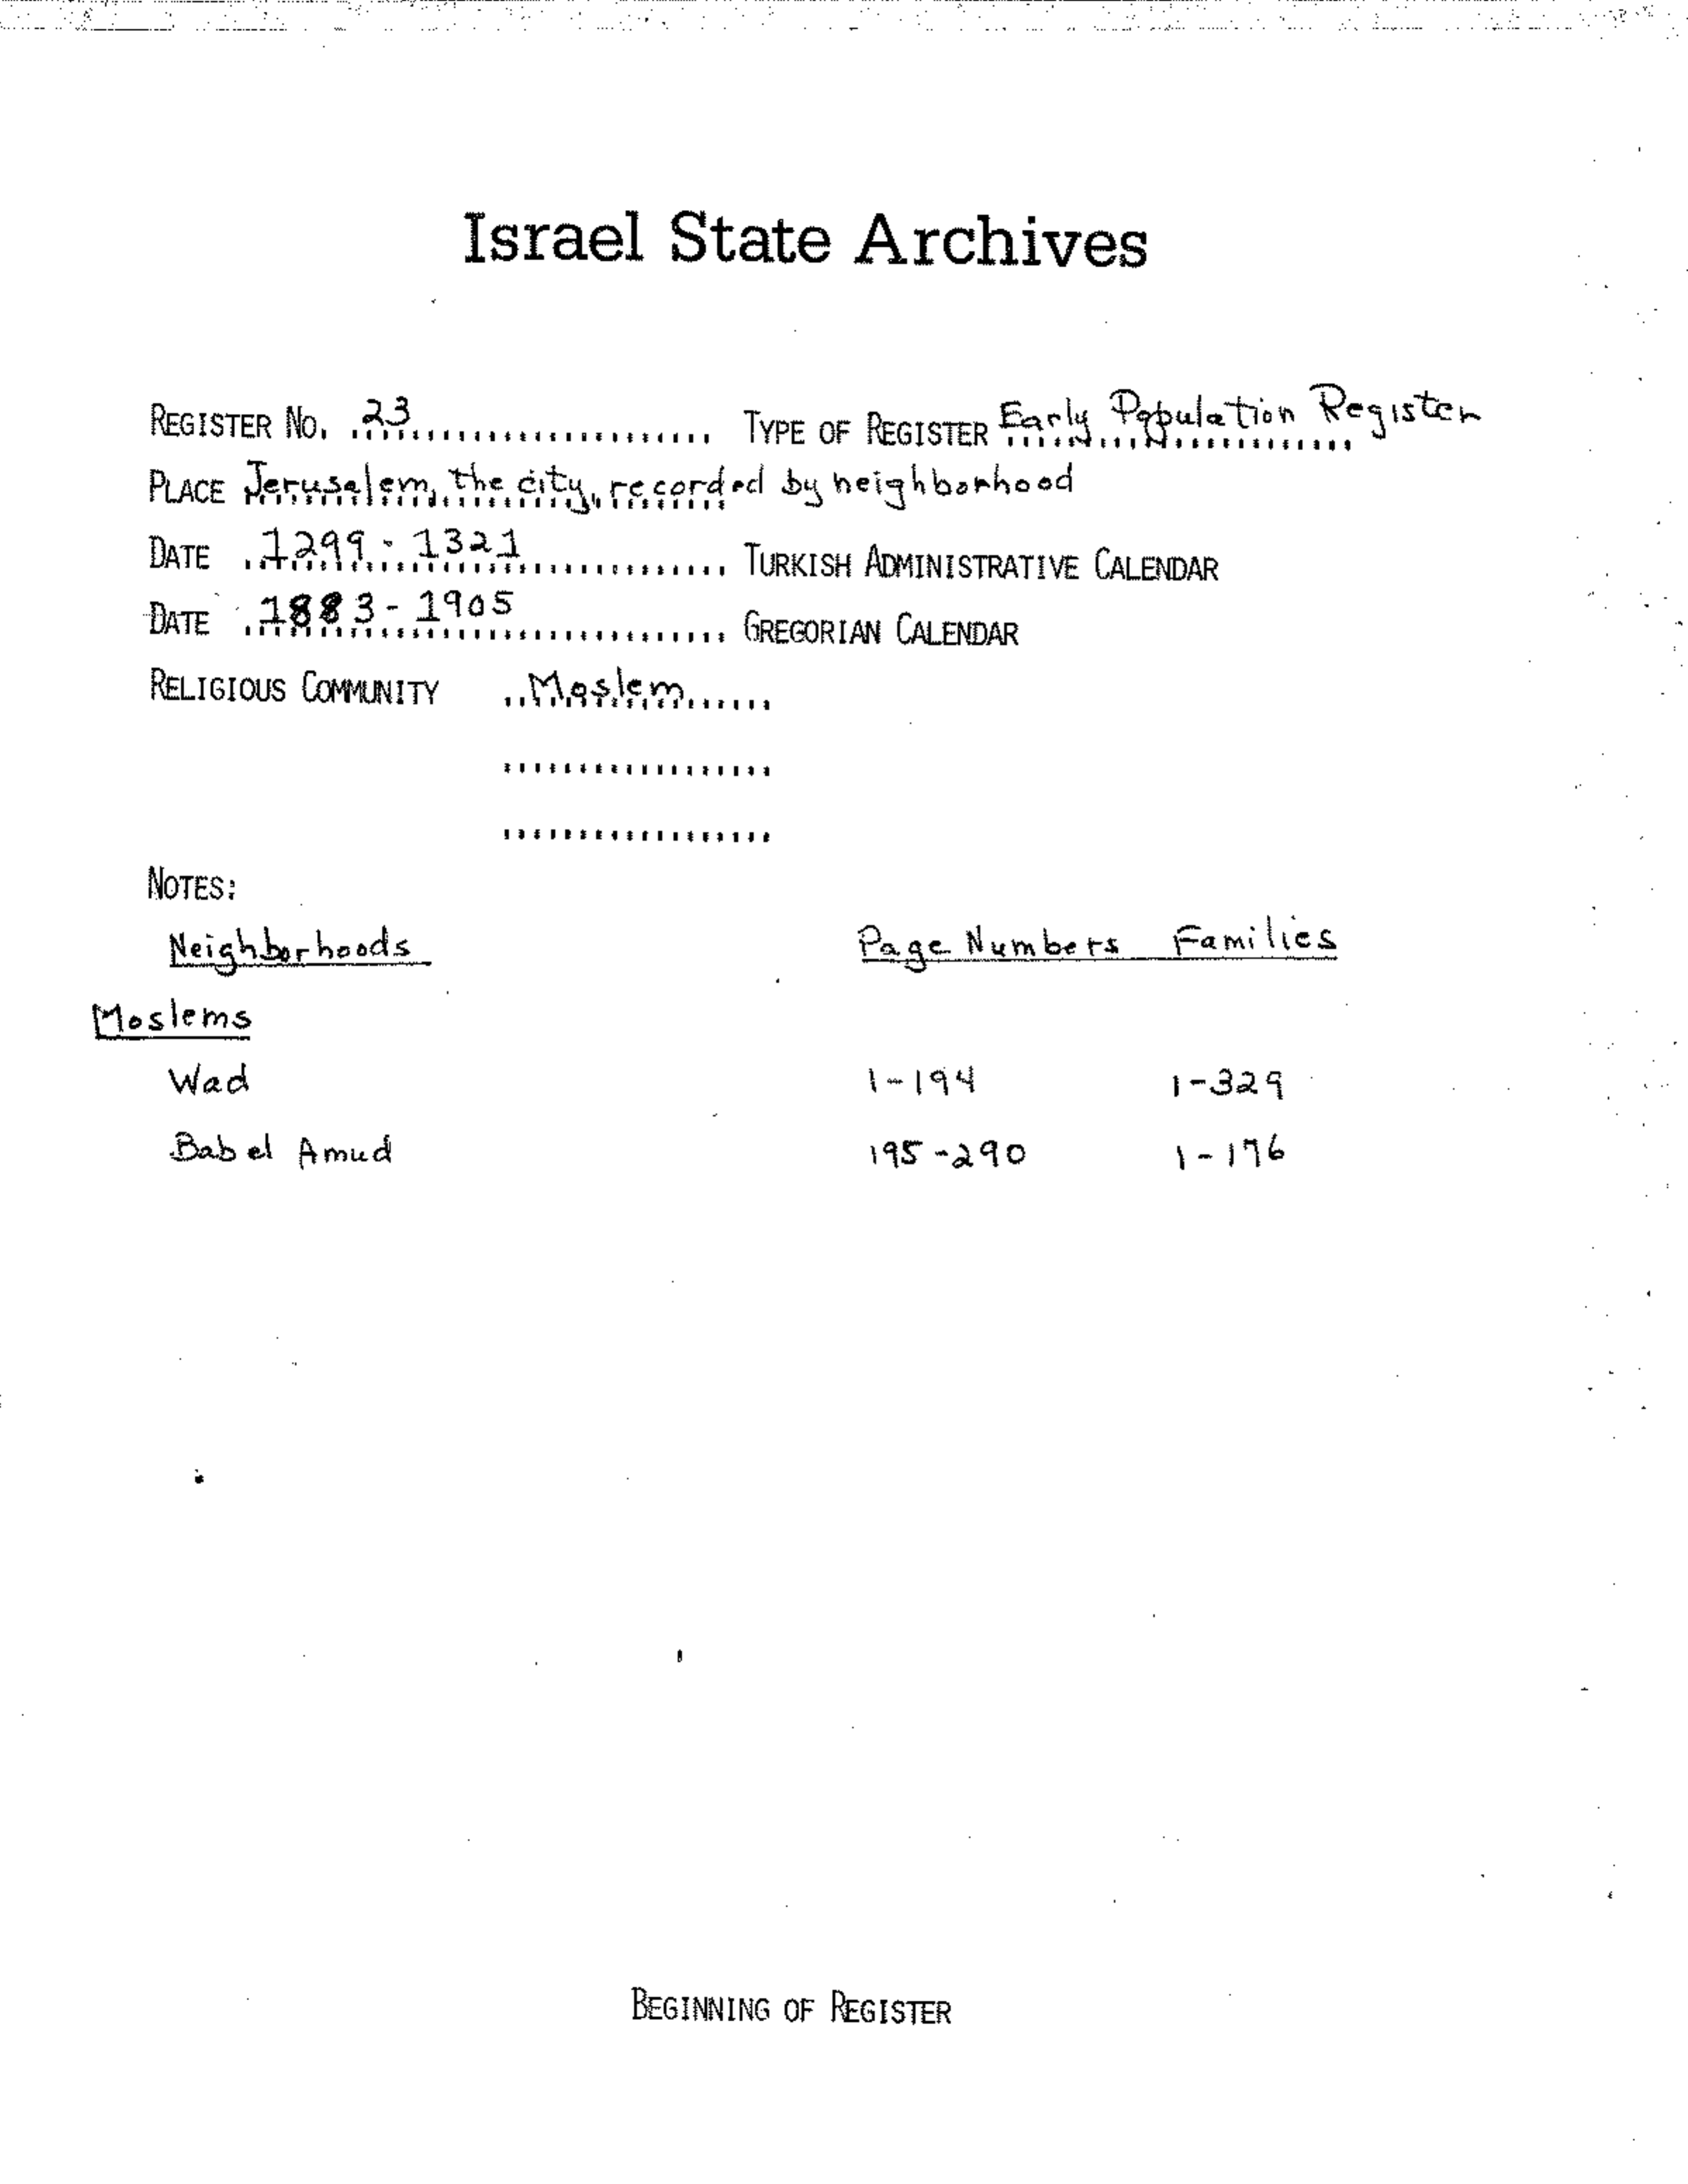 Israel State Archives
REGISTER NO. 23 TYPE OF REGISTER Early Population Register
PLACE Jerusalem, the city, recorded by neighborhood
DATE 1299 - 1321 TURKISH ADMINISTRATIVE CALENDAR
DATE 1883 - 1905 GREGORIAN CALENDAR
RELIGIOUS COMMUNITY Moslem
NOTES:
Neighborhoods Page Numbers Families
Moslems
Wad 1-194 1-329
Bab el Amud 195-290 1-176
BEGINNING OF REGISTER